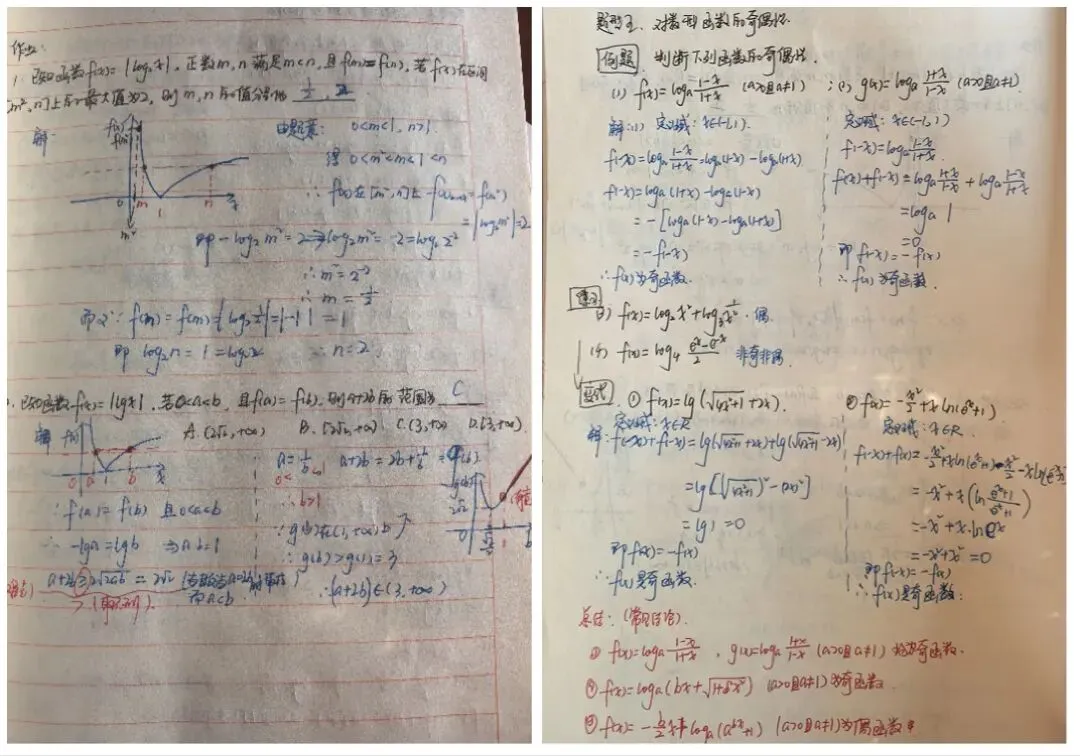 作业:
1. 已知函数f(x)=|log₂x|,正数m,n满足m<n,且f(m)=f(n),若f(x)在区间
[m²,n]上的最大值为2,则m,n的值分别为 1/2,2
解:
f(x)
f(m²)
0 m 1 n x
m²
由题意: 0<m<1, n>1.
得 0<m²<m<1<n
∴ f(x)在[m²,n]上 f(x)max=f(m²)
=|log₂m²|=2
即 -log₂m²=2⇒log₂m²=-2=log₂2⁻²
∴m²=2⁻²
∴ m=1/2
而又∵ f(n)=f(m)=|log₂1/2|=|-1|=1
即 log₂n=1=log₂2 ∴n=2.
已知函数f(x)=|lgx|,若0<a<b,且f(a)=f(b),则a+2b的范围为 C
A.(2√2,+∞) B.[2√2,+∞) C.(3,+∞) D.[3,+∞).
解 f(x)
0 a 1 b x
∵ f(a)=f(b) 且0<a<b
∴ -lga=lgb ⇒ab=1
a+2b≥2√2ab=2√2
而a<b
∵ a=1/b a+2b=2b+1/b=g(b)
∴b>1
∵g(b)在(1,+∞)b↗
∴g(b)>g(1)=3
∴(a+2b)∈(3,+∞)
g(b)
2√2
0 √2/2 1 b
题型三、对数型函数的奇偶性.
例题 判断下列函数的奇偶性.
(1) f(x)=logₐ(1-x)/(1+x) (a>0且a≠1) ; (2) g(x)=logₐ(1+x)/(1-x) (a>0且a≠1).
解:(1) 定义域:x∈(-1,1).
f(x)=logₐ(1-x)/(1+x)=logₐ(1-x)-logₐ(1+x)
f(-x)=logₐ(1+x)-logₐ(1-x)
=-[logₐ(1-x)-logₐ(1+x)]
=-f(x)
∴f(x)为奇函数.
定义域:x∈(-1,1)
f(-x)=logₐ(1-x)/(1+x)
f(x)+f(-x)=logₐ(1+x)/(1-x)+logₐ(1-x)/(1+x)
=logₐ1
=0
即 f(-x)=-f(x)
∴ f(x)为奇函数.
练习
f(x)=log₂x²+log₃1/x². 偶
f(x)=log₄(eˣ-e⁻ˣ)/2 非奇非偶
变式 ① f(x)=lg(√4x²+1+2x).
定义域:x∈R
解:f(x)+f(-x)=lg(√4x²+1+2x)+lg(√4x²+1-2x)
=lg[(√4x²+1)²-(2x)²]
=lg1=0
即f(-x)=-f(x)
∴f(x)是奇函数.
② f(x)=-x²/2+xln(eˣ+1)
定义域:x∈R.
f(-x)+f(x)=-x²/2+xln(eˣ+1)-x²/2-xln(e⁻ˣ+1)
=-x²+x(ln(eˣ+1)/(e⁻ˣ+1))
=-x²+x·lneˣ
=-x²+x²=0
即f(-x)=-f(x)
∴f(x)是奇函数.
总结:(常见结论)
① f(x)=logₐ(1-x)/(1+x),g(x)=logₐ(1+x)/(1-x) (a>0且a≠1)均为奇函数.
② f(x)=logₐ(bx+√1+b²x²) (a>0且a≠1)为奇函数
③ f(x)=-b/2x+logₐ(aᵇˣ+1) (a>0且a≠1)为偶函数